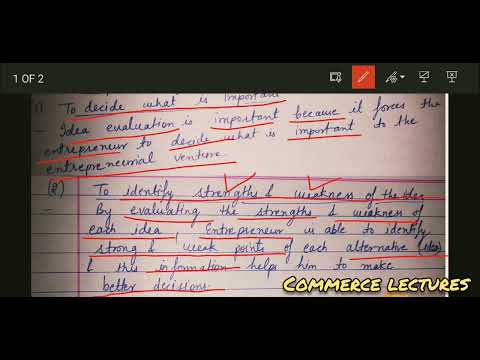 1 OF 2
1) To decide what is important
- Idea evaluation is important because it forces the
entrepreneur to decide what is important to the
entrepreneurial venture.
(2) To identify strengths & weakness of the Idea
- By evaluating the strengths & weakness of
each idea, Entrepreneur is able to identify
strong & weak points of each alternative (idea)
& this information helps him to make
better decisions.
COMMERCE LECTURES